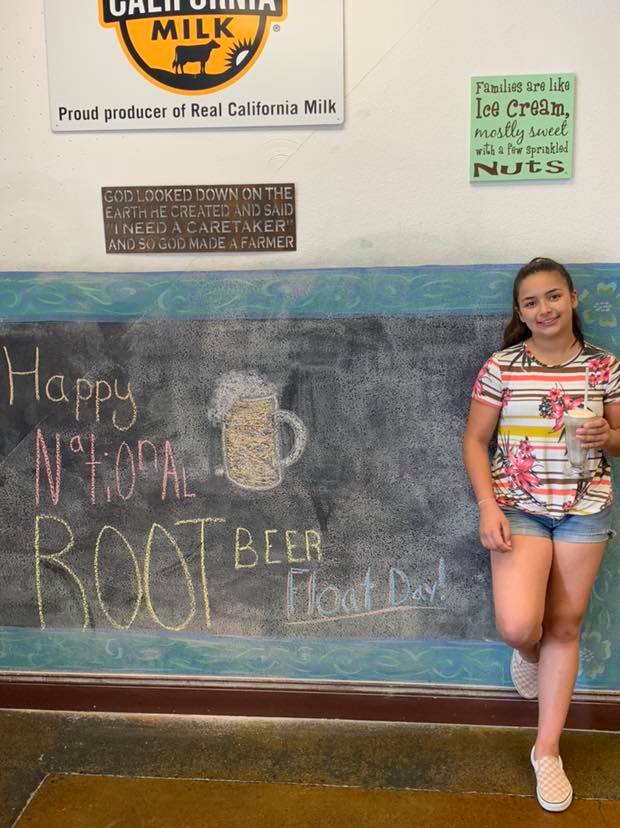 CALIFORNIA
MILK
®
Proud producer of Real California Milk
Families are like
Ice Cream,
mostly sweet
with a few sprinkled
Nuts.
GOD LOOKED DOWN ON THE
EARTH HE CREATED AND SAID
"I NEED A CARETAKER"
AND SO GOD MADE A FARMER
Happy
National
ROOT BEER
Float Day!